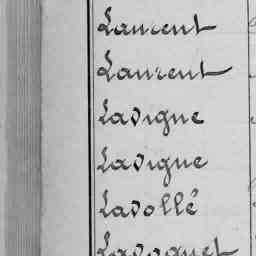 Laurent
Laurent
Lavigne
Lavigne
Lavollé